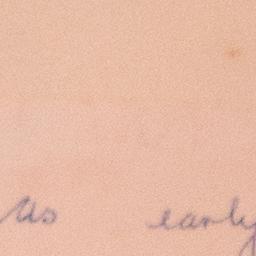 As early